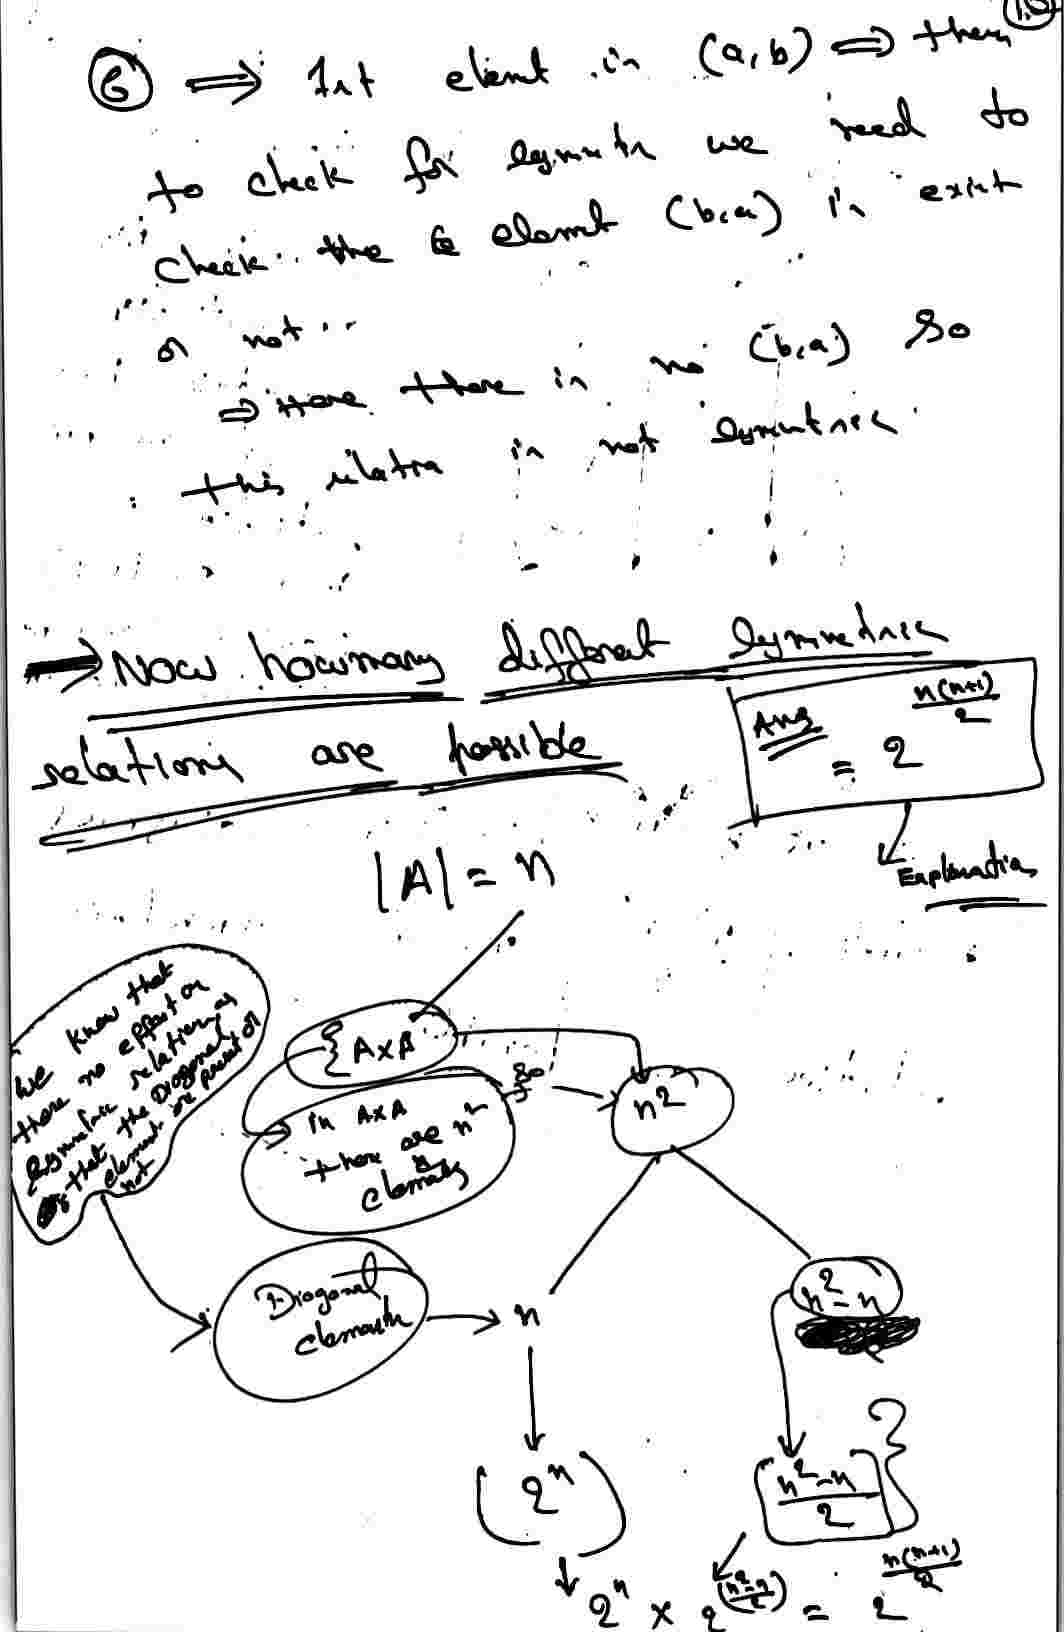 6 ⇒ 1st elemt is (a,b) ⇒ then
to check for symmetr we need to
check the elemt (b,a) is exist
or not
⇒ Here there is no (b,a) so
this relation is not symmetric
→ Now how many different symmetric
relations are possible
Ans = 2^(n(n+1)/2)
Explanation
|A| = n
we know that
there no effect on
symmetric relation as
that the Diagonal
element are present or
not
{ A×A
so
in A×A
there are n²
elements
n²
Diagonal
elements
n
n²-n
(2^n)
[(n²-n)/2]
2^n × 2^((n²-n)/2) = 2^(n(n+1)/2)